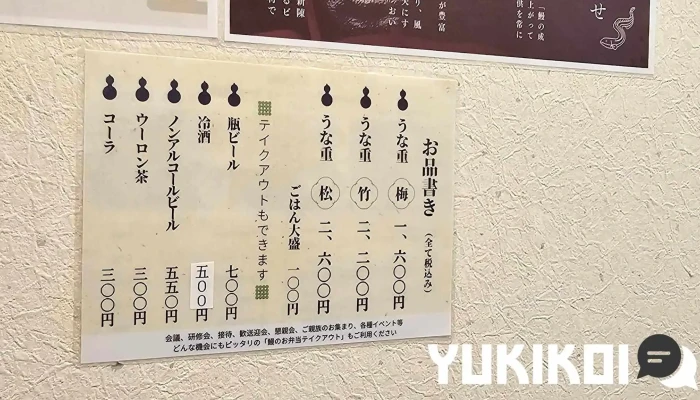 お品書き（全て税込み）
うな重 梅 一、六〇〇円
うな重 竹 二、二〇〇円
うな重 松 二、六〇〇円
ごはん大盛 一〇〇円
テイクアウトもできます
瓶ビール 七〇〇円
冷酒 五〇〇円
ノンアルコールビール 五五〇円
ウーロン茶 三〇〇円
コーラ 三〇〇円
会議、研修会、接待、歓送迎会、懇親会、ご親族のお集まり、各種イベント等
どんな機会にもピッタリの「鰻のお弁当テイクアウト」もご利用ください
YUKIKOI